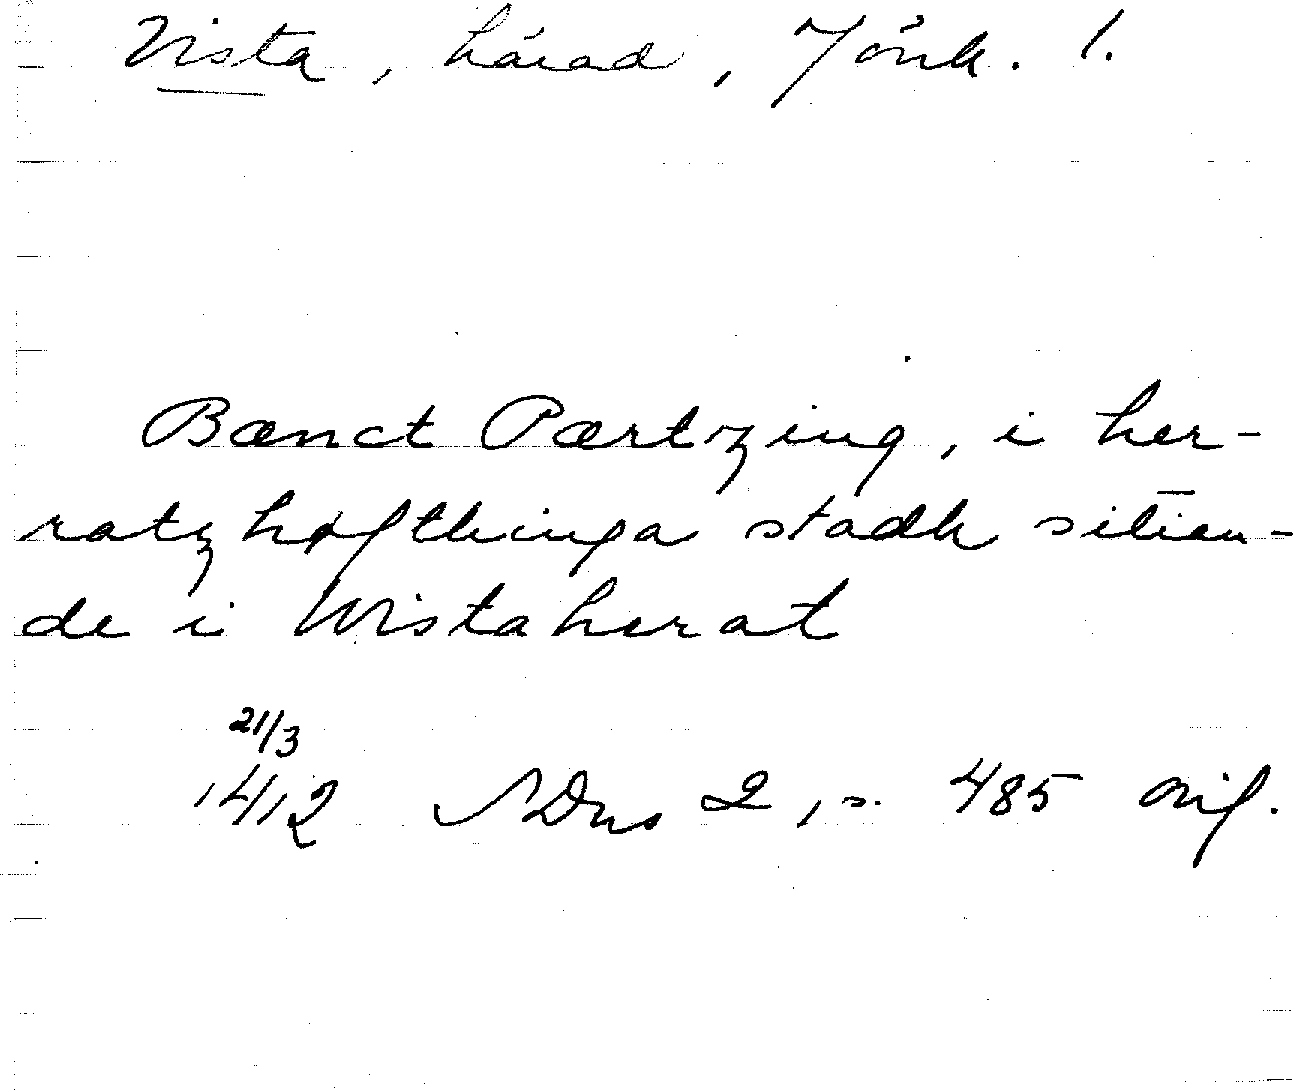 Vista, härad, Jönk. l.
Bænct Pærtzing, i her-
ratzhøfthinga stadh sitien-
de i Wistaherat
21/3
1412 SDns 2, s. 485 orig.